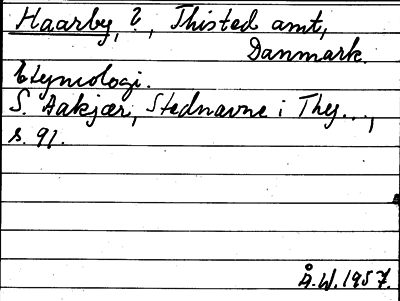 Haarby, ?, Thisted amt,
Danmark.
Etymologi.
S. Aakjær, Stednavne i Thy...,
s. 91.
Å.W. 1957.